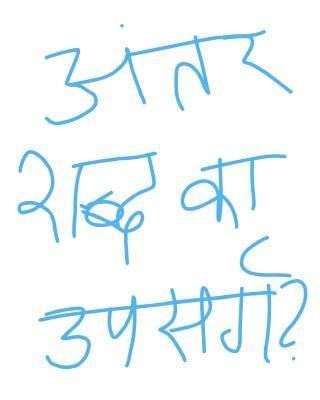 अंतर
शब्द का
उपसर्ग?